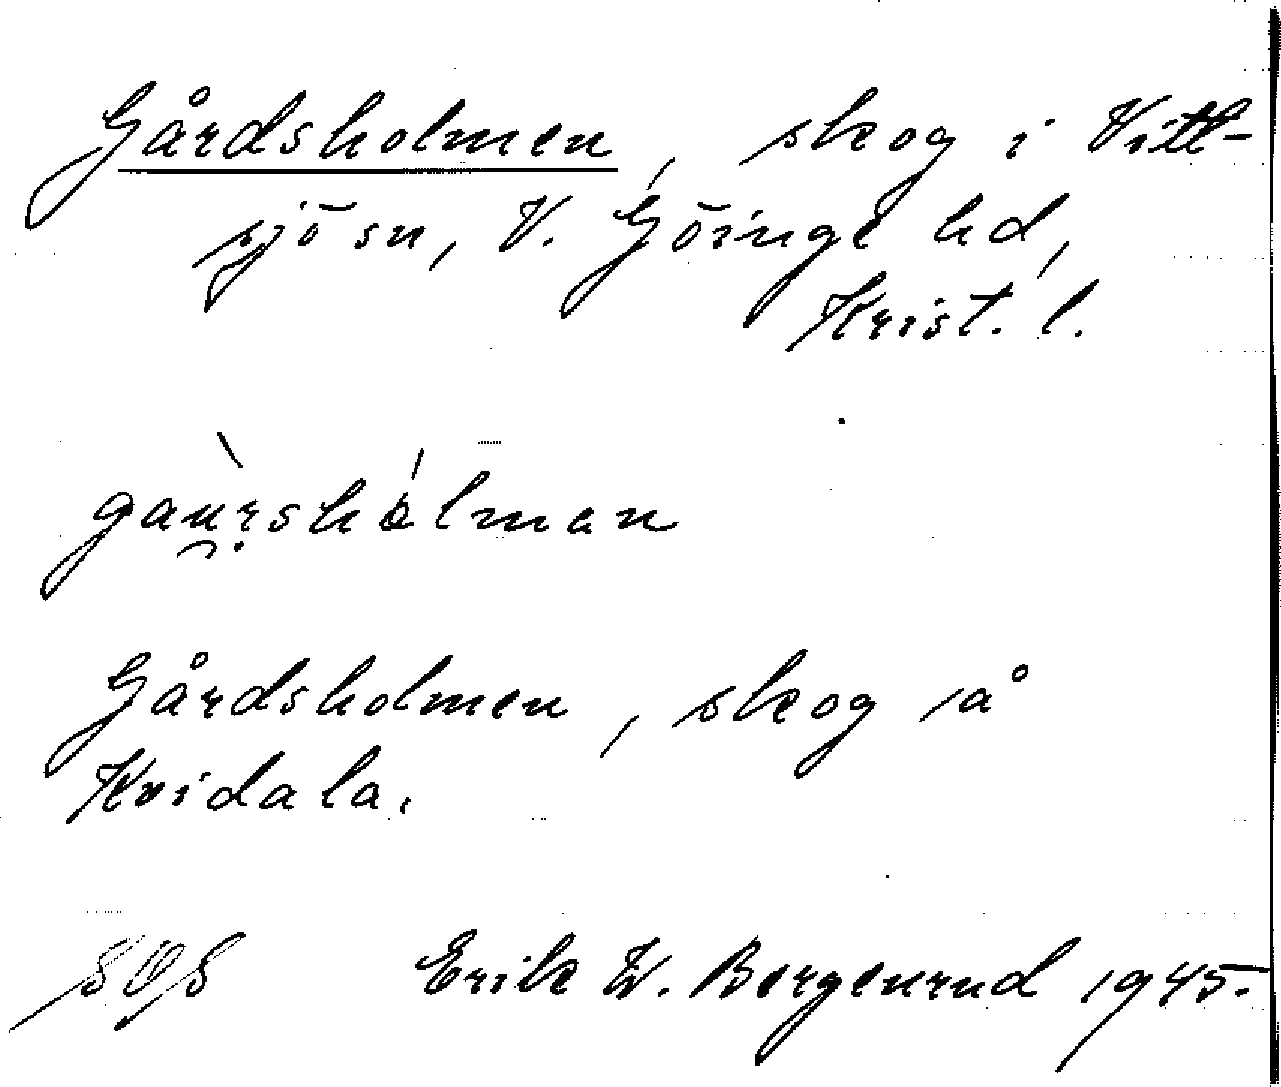 Gårdsholmen, skog i Vitt-
sjö sn, V. Göinge hd,
Krist. l.
gau̯rshòlman
Gårdsholmen, skog på
Kvidala.
SOS Erik W. Bergenrud 1945.